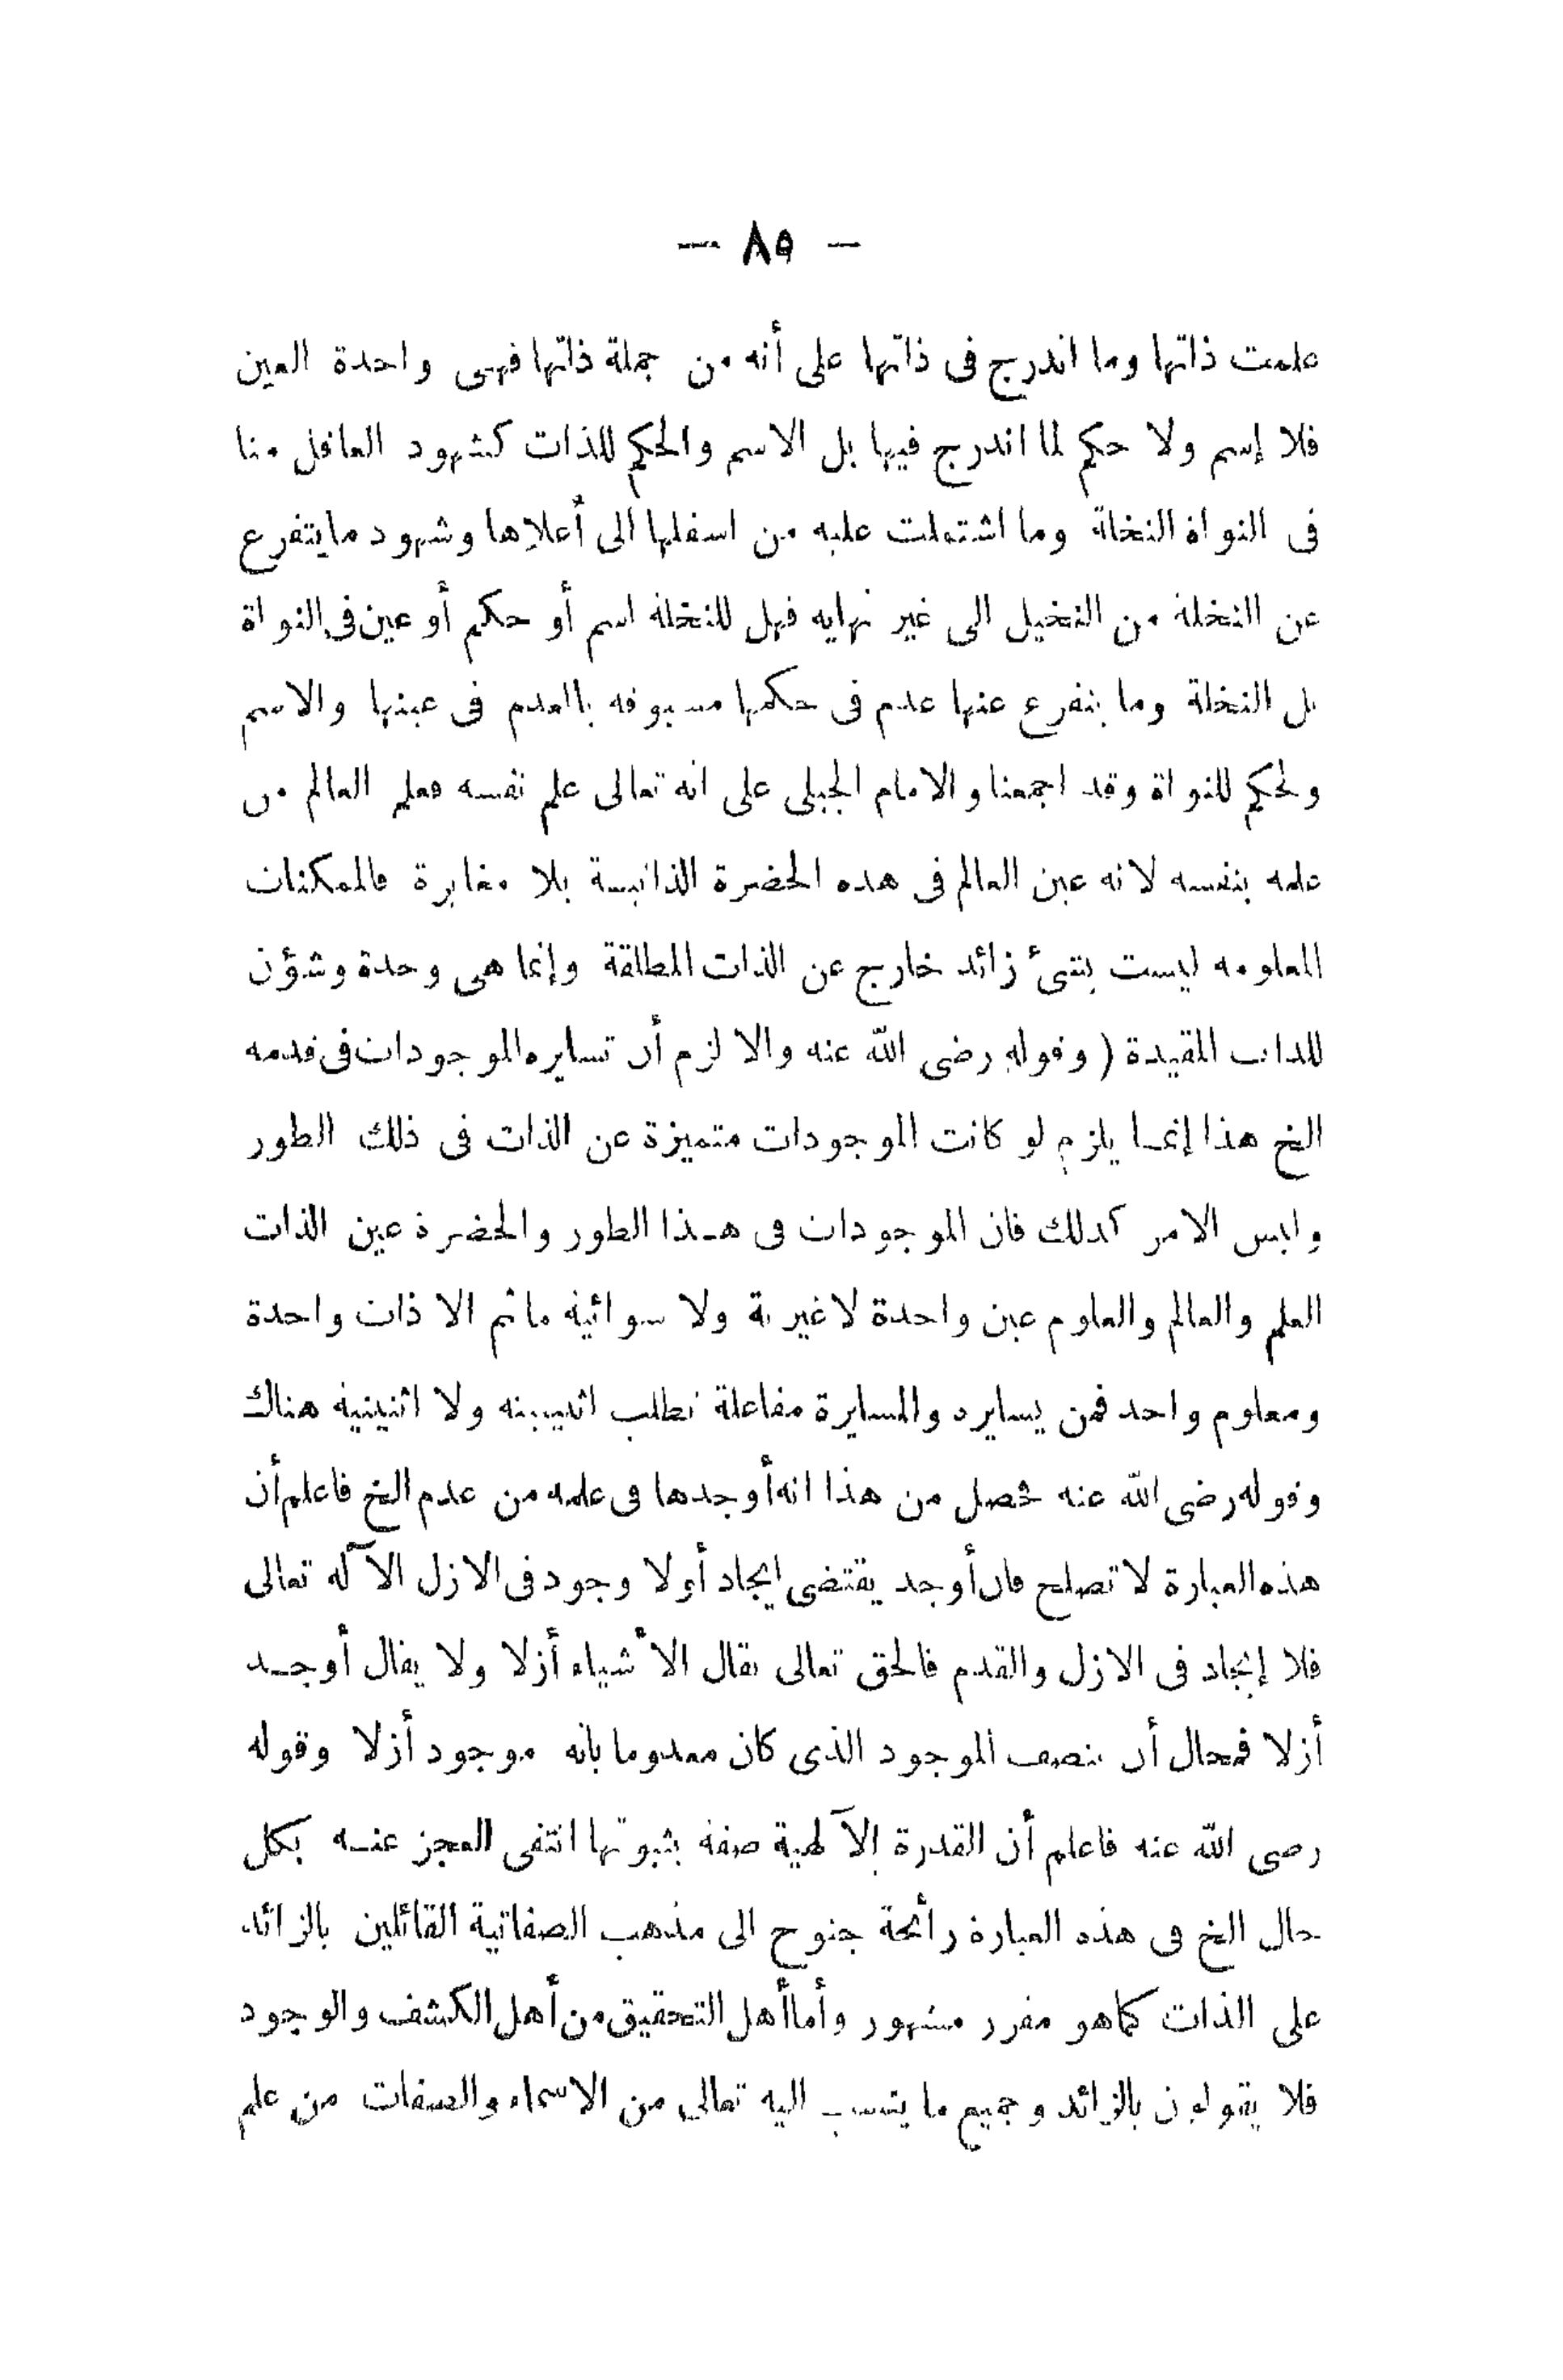 — ٨٥ —
علمت ذاتها وما اندرج فى ذاتها على أنه من جملة ذاتها فهى واحدة العين
فلا إسم ولا حكم لما اندرج فيها بل الاسم والحكم للذات كشهود العاقل منا
فى النواة النخلة وما اشتملت عليه من اسفلها الى أعلاها وشهود مايتفرع
عن النخلة من النخيل الى غير نهايه فهل للنخلة اسم أو حكم أو عين فى النواة
بل النخلة وما يتفرع عنها عدم فى حكمها مسبوقه باالعدم فى عينها والاسم
ولحكم للنواة وقد اجمعنا والامام الجيلى على انه تعالى علم نفسه فعلم العالم من
علمه بنفسه لانه عين العالم فى هذه الحضرة الذاتيسة بلا مغايرة فالممكنات
المعلومه ليست بشئ زائد خارج عن الذات المطلقة وإنما هى وحدة وشؤن
للذات المقيدة ( وقوله رضى الله عنه والا لزم أن تسايره الموجودات فى قدمه
الخ هذا إنما يلزم لو كانت الموجودات متميزة عن الذات فى ذلك الطور
وليس الامر كذلك فان الموجودات فى هذا الطور والحضرة عين الذات
العلم والعالم والمعلوم عين واحدة لاغيرية ولا سوائيه ماثم الا ذات واحدة
ومعلوم واحد فمن يسايره والمسايرة مفاعلة تطلب اثنيينه ولا اثنينيه هناك
وقوله رضى الله عنه فحصل من هذا انه أوجدها فى علمه من عدم الخ فاعلم أن
هذه العبارة لا تصلح فان أوجد يقتضى ايجاد أولا وجود فى الازل الا آله تعالى
فلا إيجاد فى الازل والقدم فالحق تعالى يقال الأشياء أزلا ولا يقال أوجد
أزلا فمحال أن يتصف الموجود الذى كان معدوما بانه موجود أزلا وقوله
رضى الله عنه فاعلم أن القدرة الآلهية صفة بثبوتها انتفى العجز عنه بكل
حال الخ فى هذه العبارة رائحة جنوح الى مذهب الصفاتية القائلين بالزائد
على الذات كماهو مقرر مشهور وأما أهل التحقيق من أهل الكشف والوجود
فلا يقولون بالزائد وجميع ما ينسب اليه تعالى من الاسماء والصفات من علم